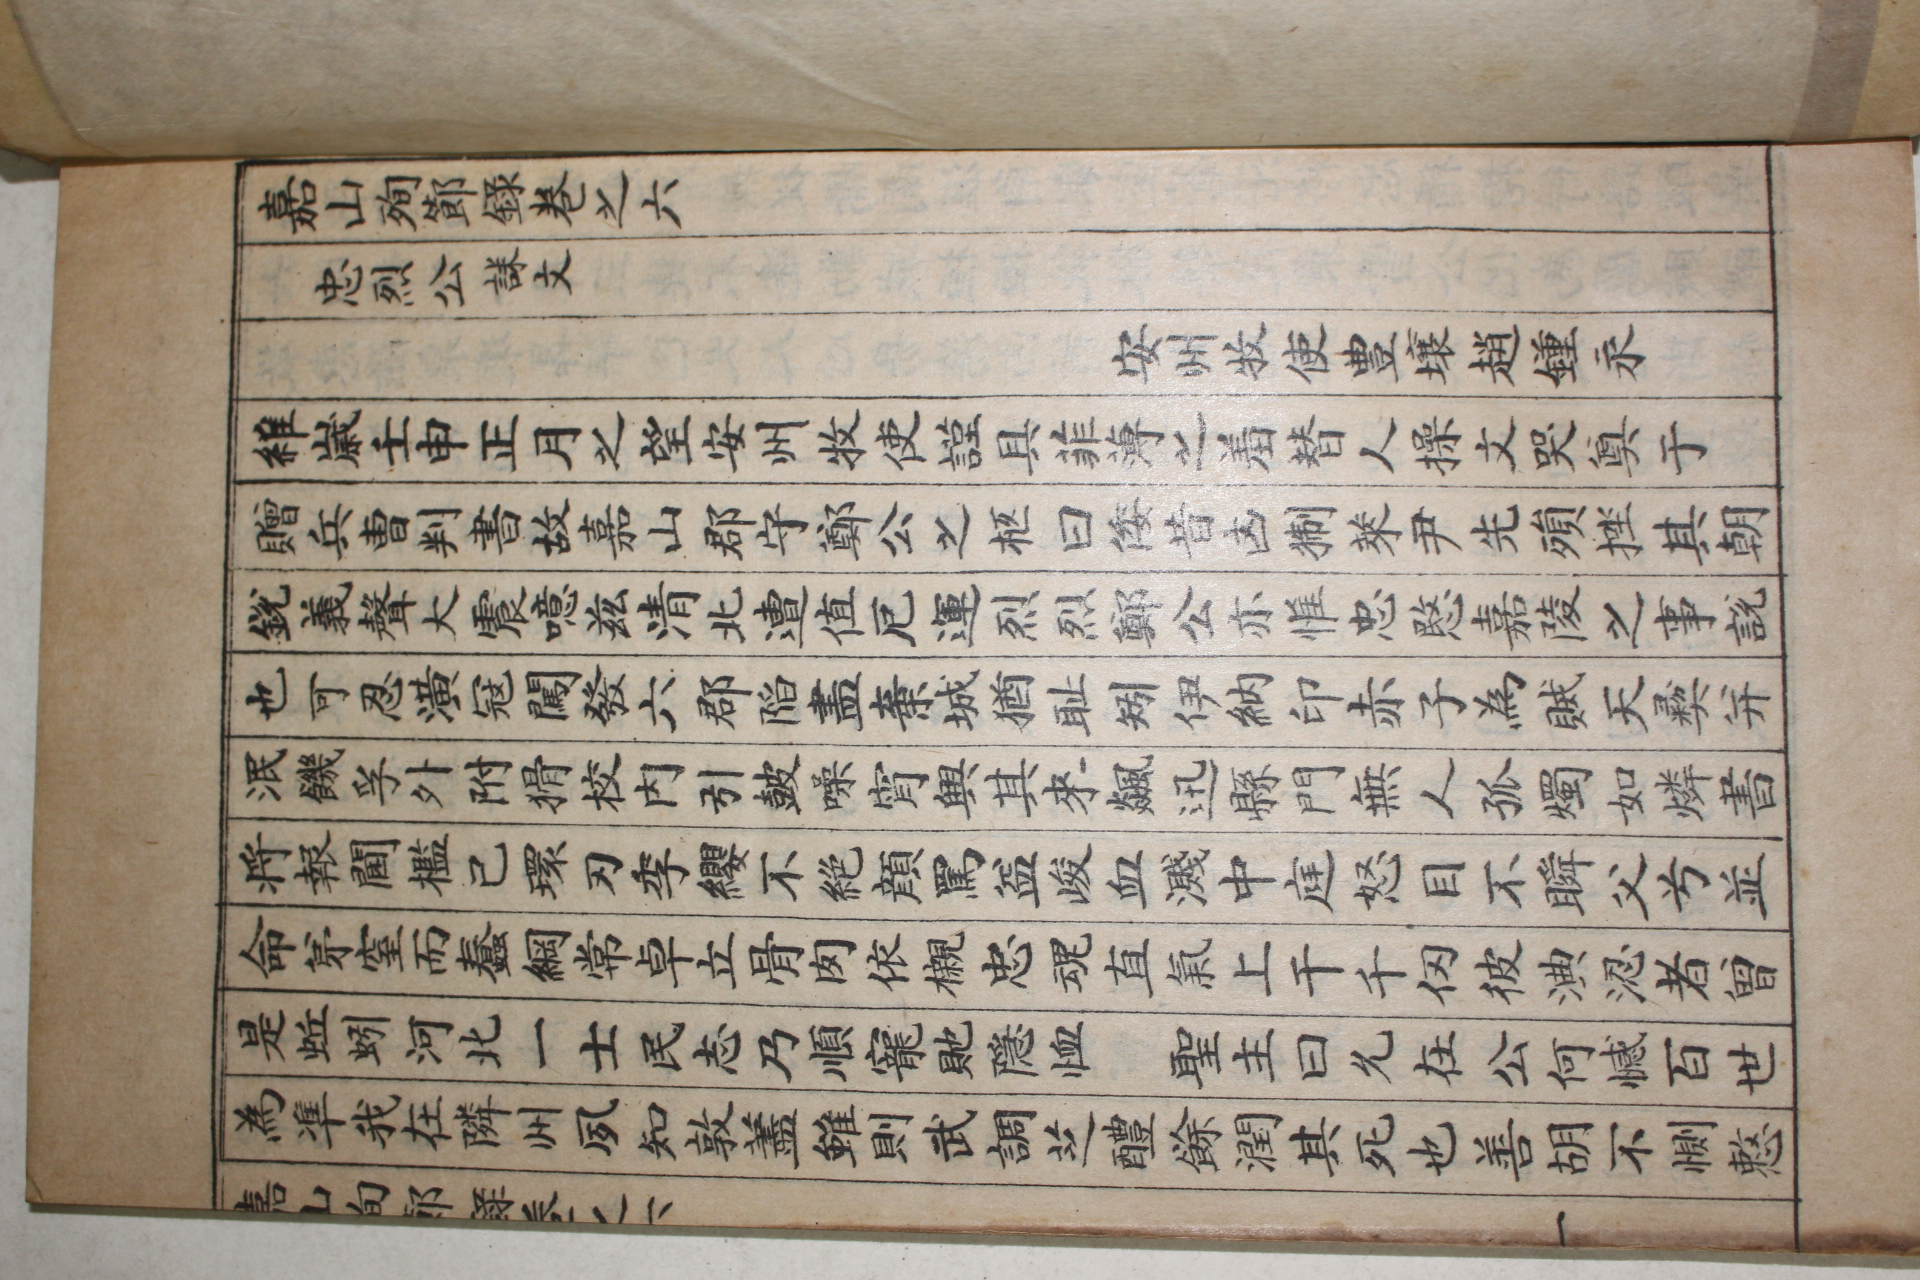 嘉山殉節錄卷之六
忠烈公誄文
安州牧使豊壤趙鍾永
維歲壬申正月之望安州牧使謹具菲薄之羞替人操文哭奠于
贈兵曹判書故嘉山郡守鄭公之柩曰倭昔凶猘萊尹先殞挫其朝
銳義聲大震噫玆清北遭值厄運烈烈鄭公亦惟忠愍嘉陵之事說
也可忍潢寇闖發六郡陷盡棄城猶耻矧伊納印赤子為賊天彛弁
泯饑孚外附猾校內引鼓噪宵興其來飆迅縣門無人孤燭如燐書
將報閫檻已環刃季纓不絕顔罵益峻血濺中庭怒目不瞬父兮並
命弟窒而蠢綱常卓立骨肉依櫬忠魂直氣上干千仞彼淟涊者曾
是蚯蚓河北一士民志乃順寵貤隱恤 聖主曰允在公何憾百世
為準我在隣州夙知敦藎雖則武調芝醴餘潤其死也善胡不惻憗
嘉山殉節錄卷之六 一